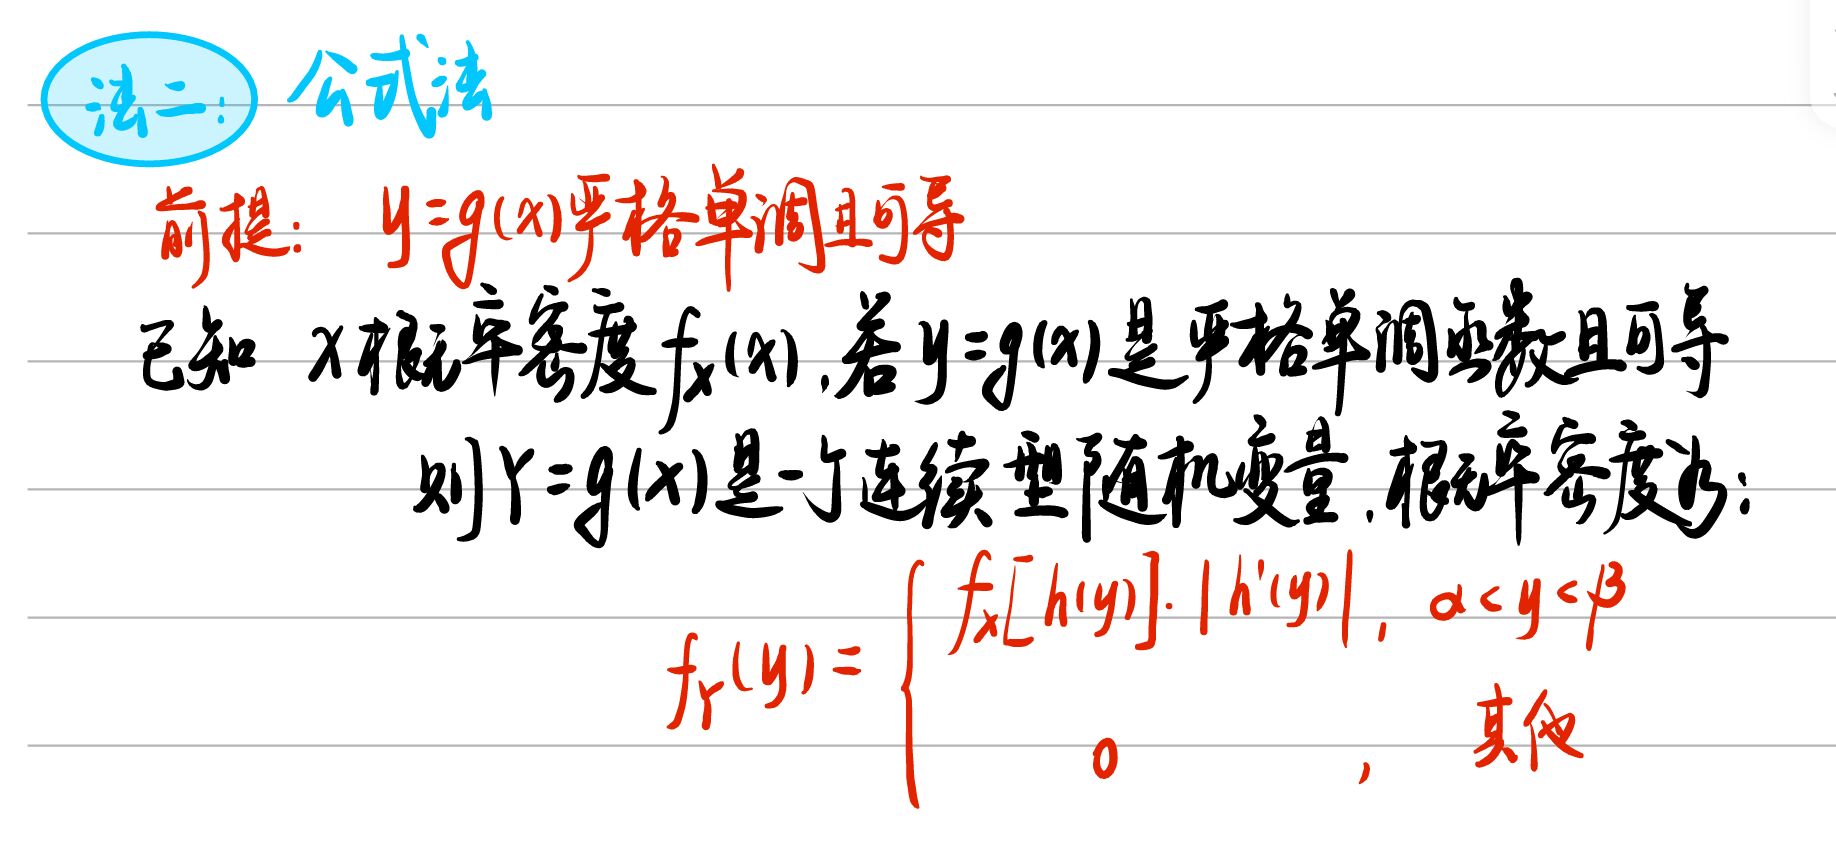 法二: 公式法
前提: y=g(x)严格单调且可导
已知 X概率密度f_X(x),若y=g(x)是严格单调函数且可导
则Y=g(X)是一个连续型随机变量,概率密度为:
f_Y(y)= { f_X[h(y)]·|h'(y)|, α<y<β
0 , 其他